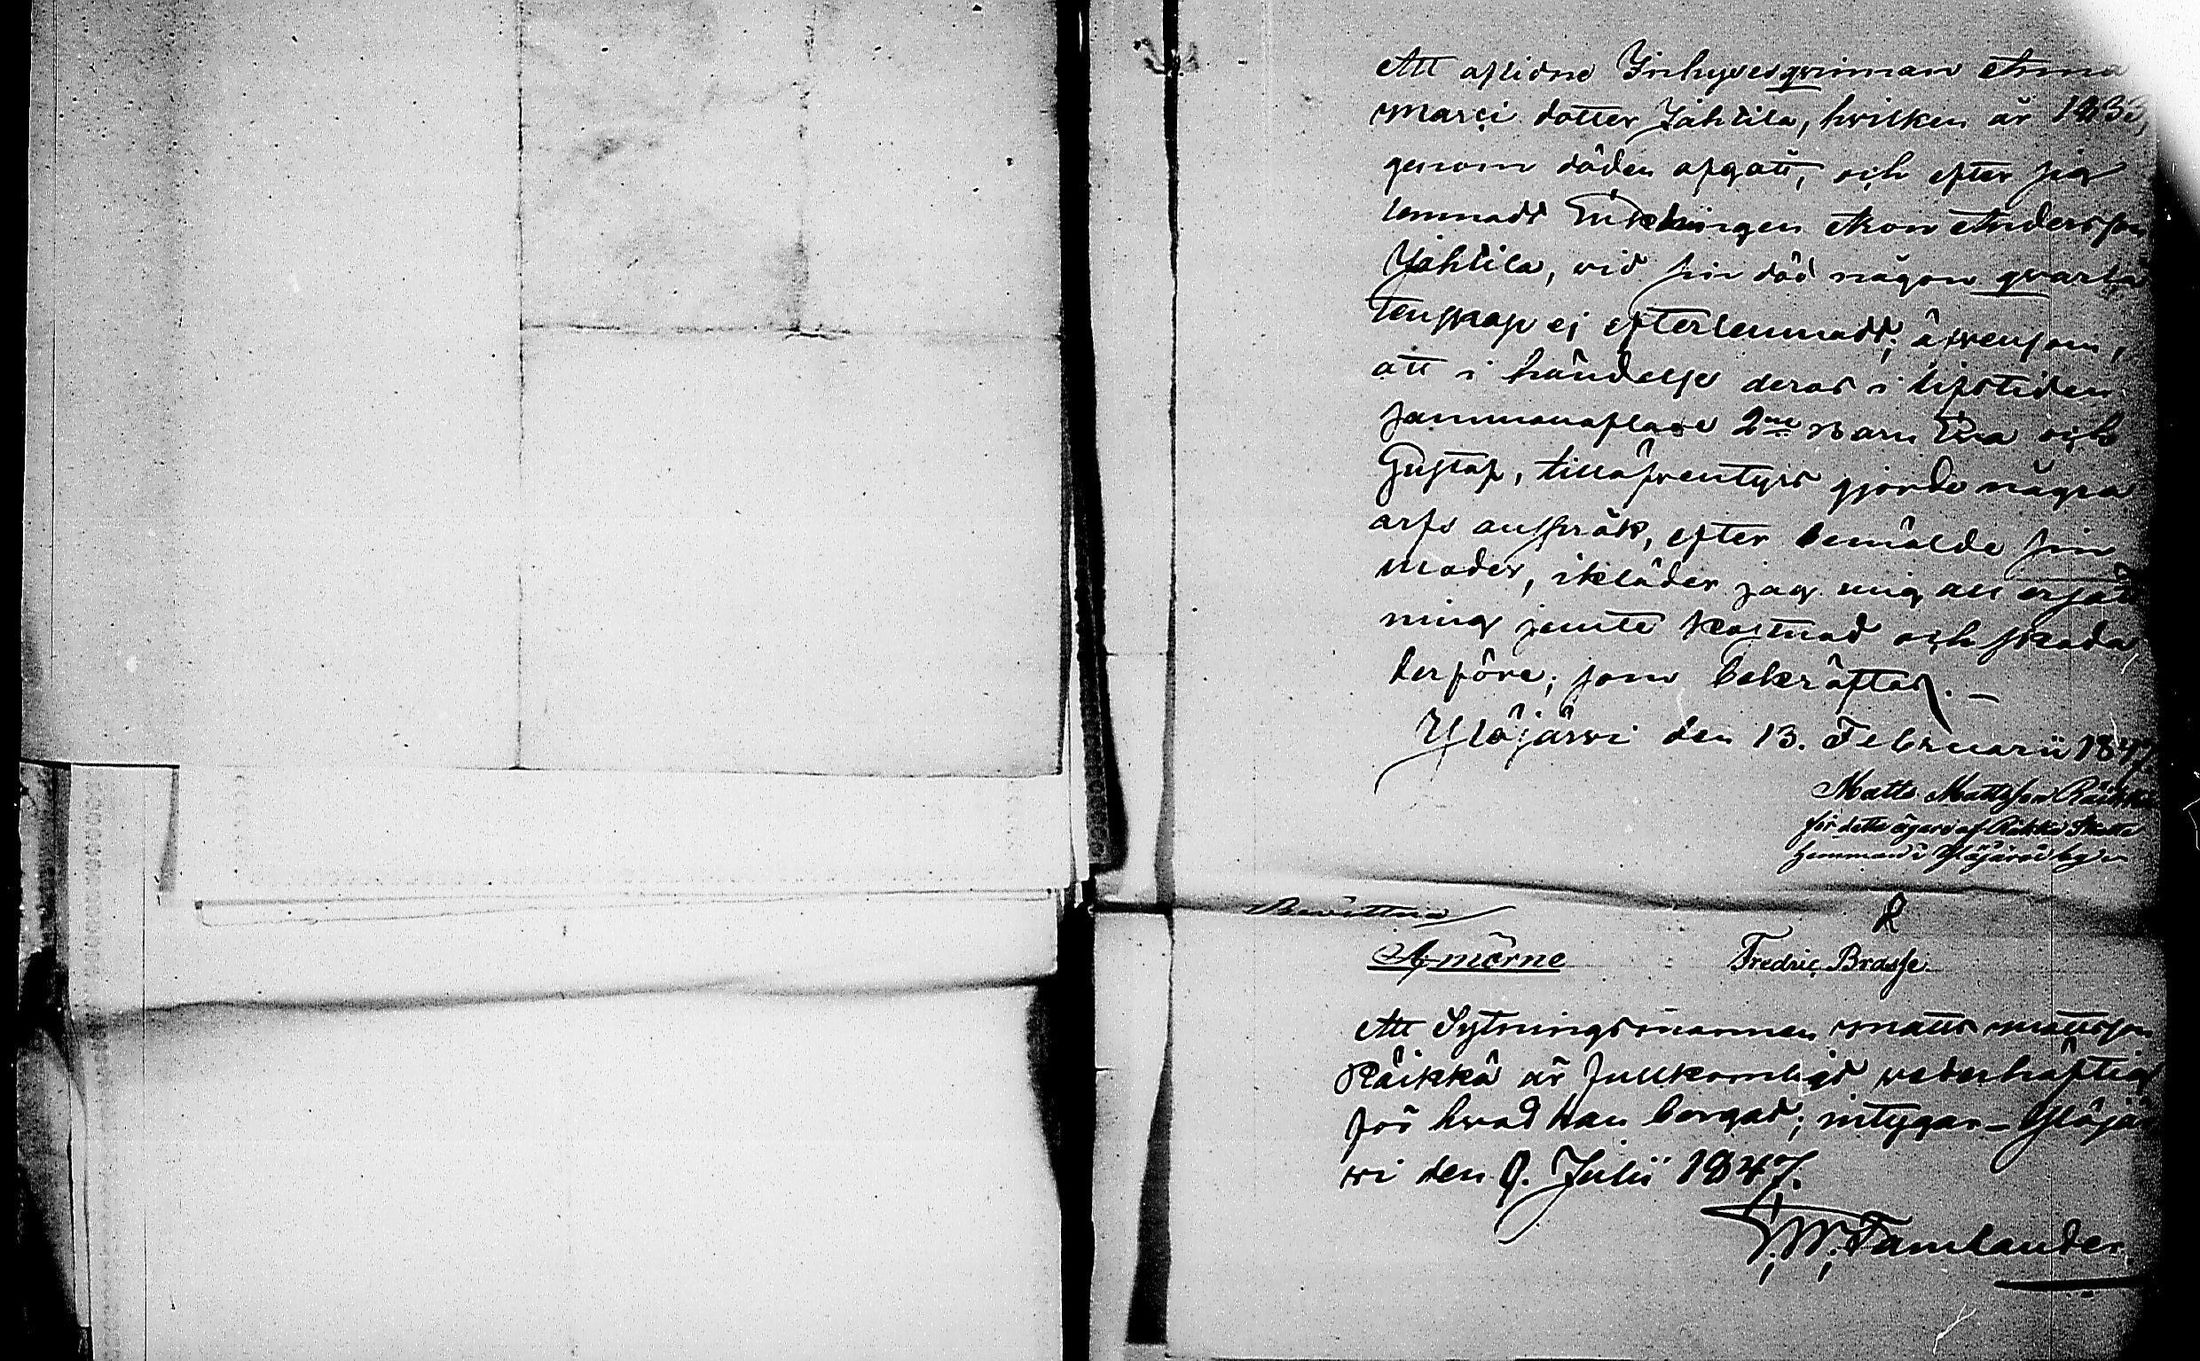 Att aflidne Inhyses qvinnan Anna
Marci dotter Jähtilä, hvilken år 1833,
genom döden afgått, och efter sig
lemnadt Enklingen Andersson
Yähtilä, vid sin död någon qvarlå
tenskap ej efterlemnadt; äfvensom,
att i händelse deras i lifstiden
sammanaflade 2ne Barn Eva och
Gustaf, tilläfventyrs gjorde några
arfs anspråk, efter bemälde sin
moder, ikläder jag mig all ersätt
ning jemte kostnad och skada,
derföre; som bekräftas. —
Ylöjärvi den 13. Februarii 1847.
Matts Mattsson Räikkä
för detta ägare af Räikkä Skatte
hemman i Ylöjärvi by
Bevittna
A mörne Fredric Brasse
Att Sytningsmannen Matts Mattsson
Räikkä är fullkomligt vederhäftig
för hvad han borgat; intygar – Ylöjär
vi den 9. Julii 1847.